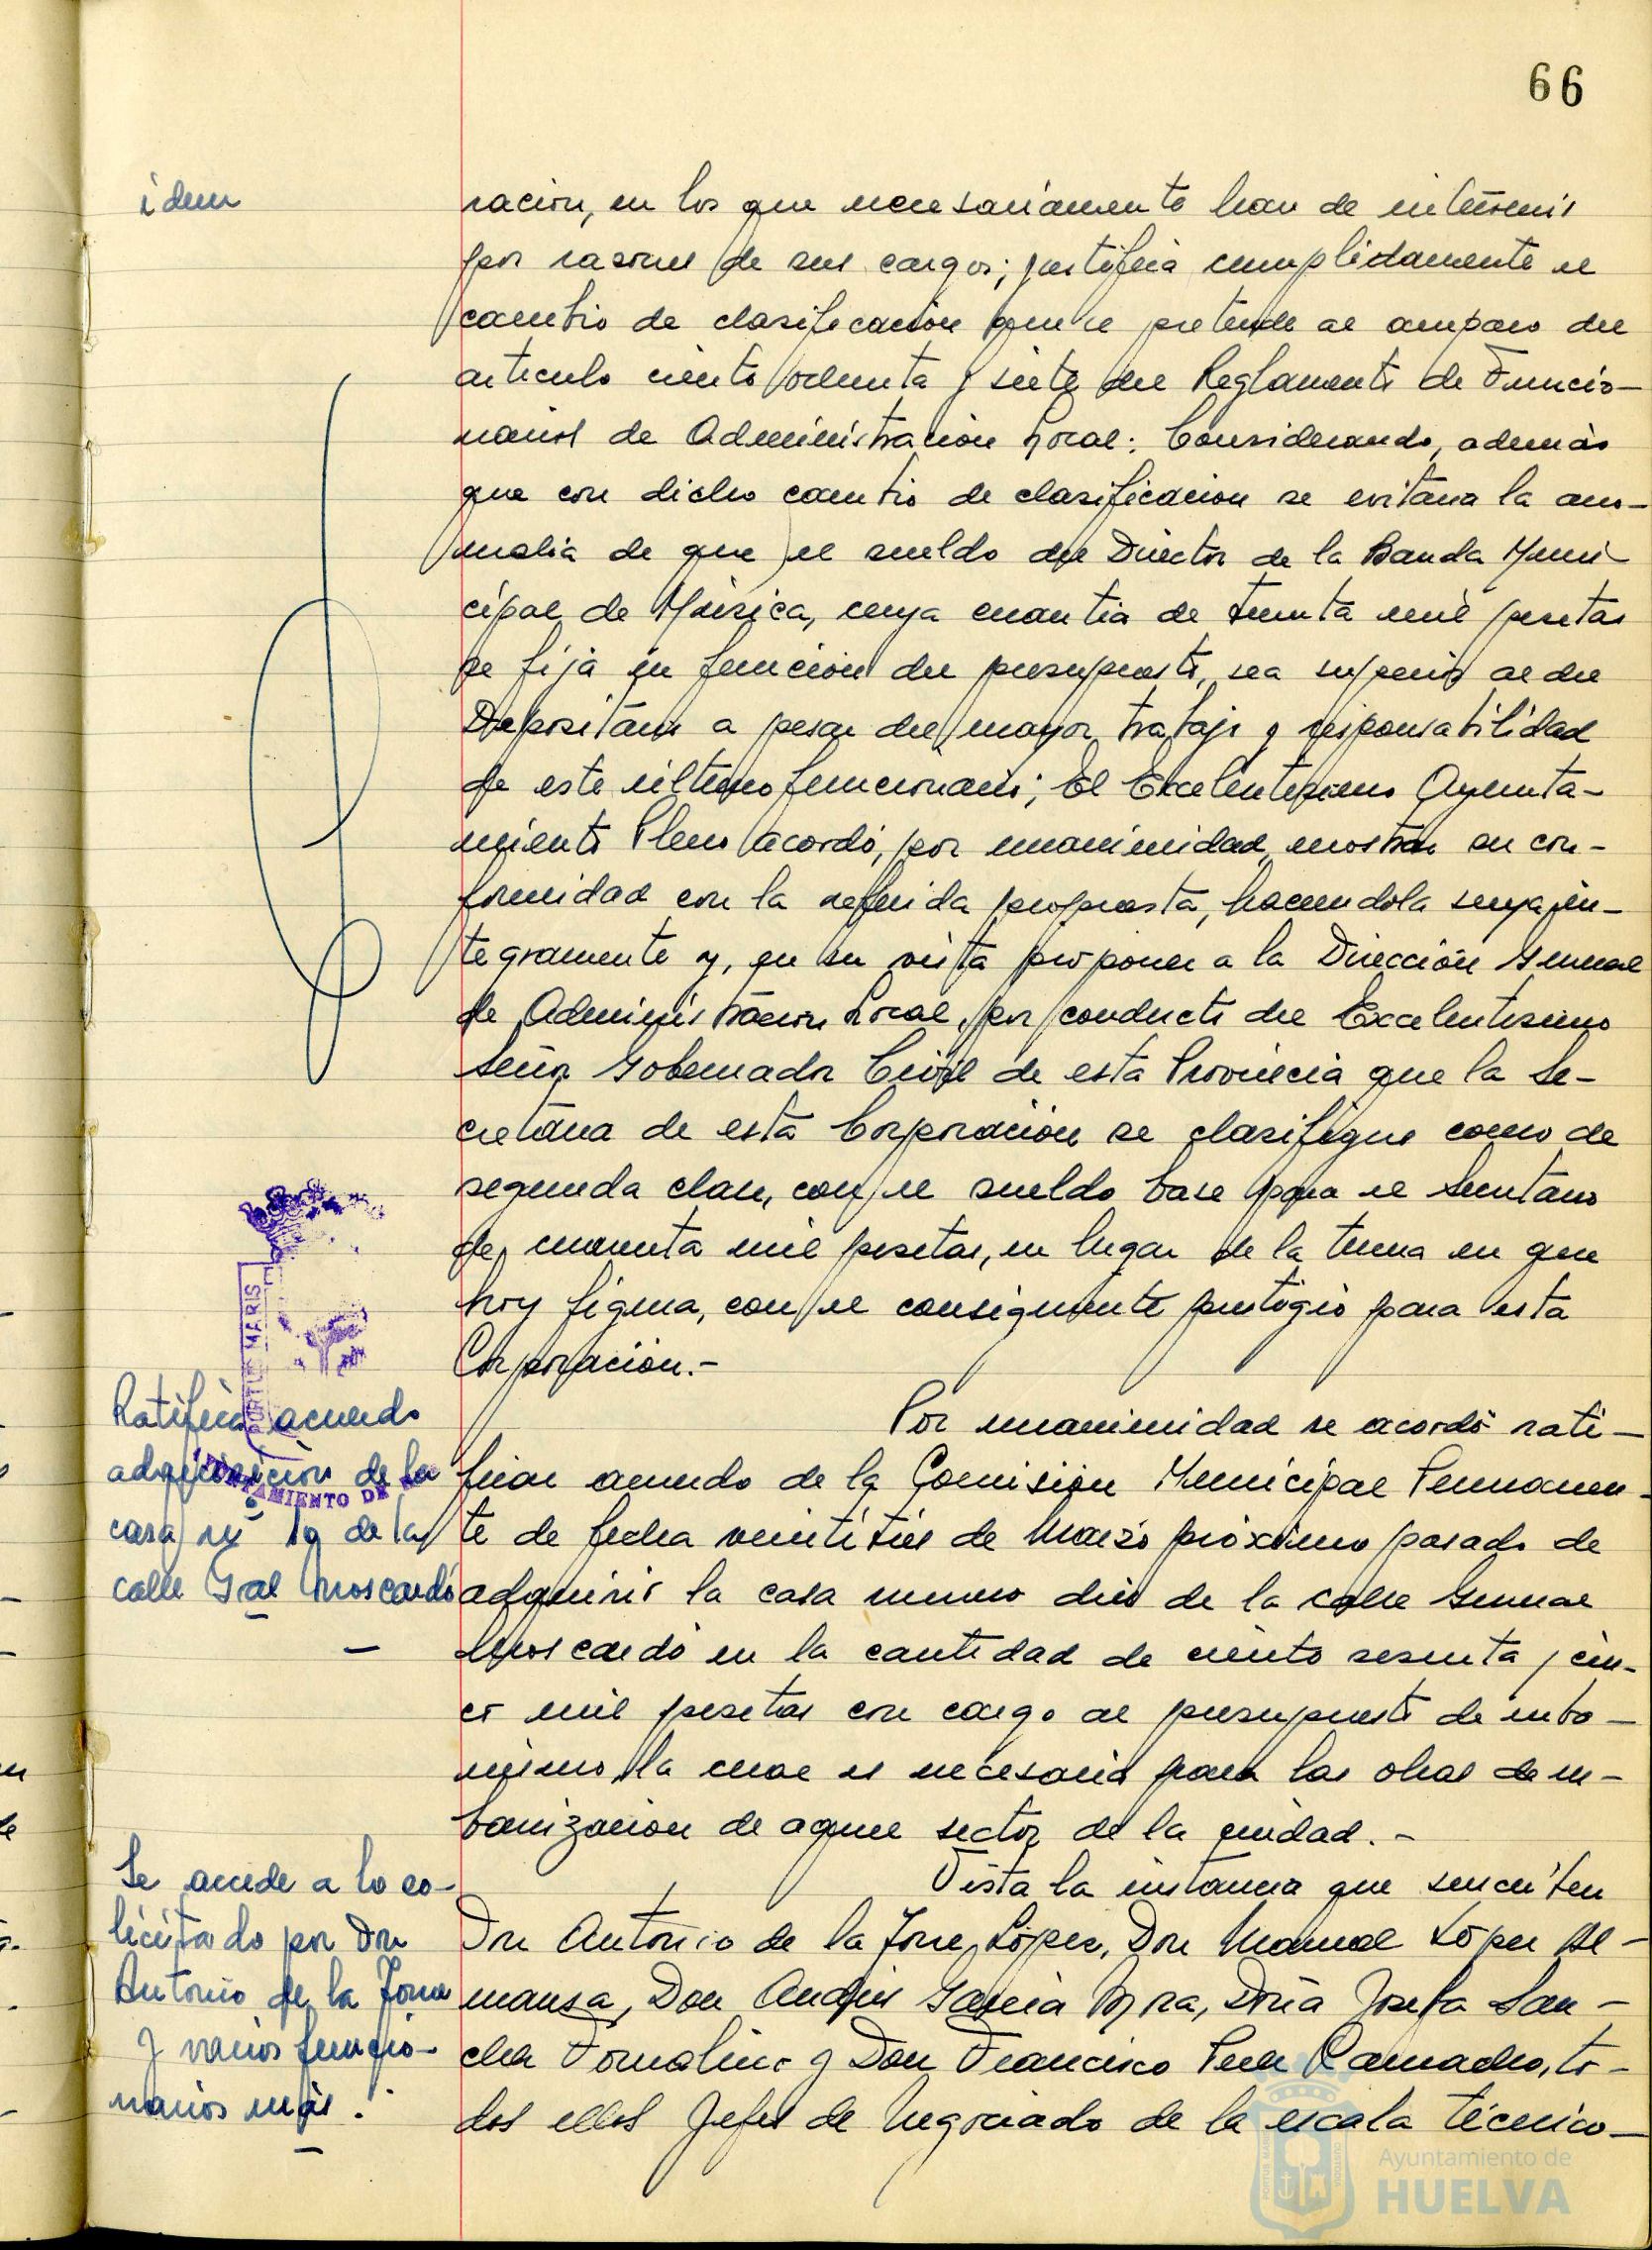 66
idem
ración, en los que necesariamente han de intervenir
por razones de sus cargos; justifica cumplidamente el
cambio de clasificación que se pretende al amparo del
artículo ciento ochenta y siete del Reglamento de Funcio-
narios de Administración Local: Considerando, además
que con dicho cambio de clasificación se evitaria la ano-
malia de que el sueldo del Director de la Banda Muni-
cipal de Música, cuya cuantia de treinta mil pesetas
se fija en función del presupuesto, sea superior al del
Depositario a pesar del mayor trabajo y responsabilidad
de este último funcionario; El Excelentisimo Ayunta-
miento Pleno acordó, por unanimidad, mostrar su con-
formidad con la referida propuesta, haciendola suya ín-
tegramente y, en su vista proponer a la Dirección General
de Administración Local, por conducto del Excelentisimo
Señor Gobernador Civil de esta Provincia que la Se-
cretaria de esta Corporación se clasifique como de
segunda clase, con el sueldo base para el Secretario
de cuarenta mil pesetas, en lugar de la tercera en que
hoy figura, con el consiguiente prestigio para esta
Corporación.-
PORTUS MARIS
AYUNTAMIENTO DE
Ratifica acuerdo
adquisición de la
casa nº 10 de la
calle Gral Moscardó
Por unanimidad se acordó rati-
ficar acuerdo de la Comisión Municipal Permanen-
te de fecha veintitrés de Marzo próximo pasado de
adquirir la casa numero diez de la calle General
Moscardó en la cantidad de ciento sesenta y cin-
co mil pesetas con cargo al presupuesto de urba-
nismo, la cual es necesaria para las obras de ur-
banización de aquel sector de la ciudad.-
Se accede a lo so-
licitado por Don
Antonio de la Torre
y varios funcio-
narios más.
Vista la instancia que suscriben
Don Antonio de la Torre López, Don Manuel López Al-
mansa, Don Andrés García Mora, Doña Josefa San-
chez Tornalino y Don Francisco Pérez Camacho, to-
dos ellos Jefes de Negociado de la escala técnico-
Ayuntamiento de
HUELVA